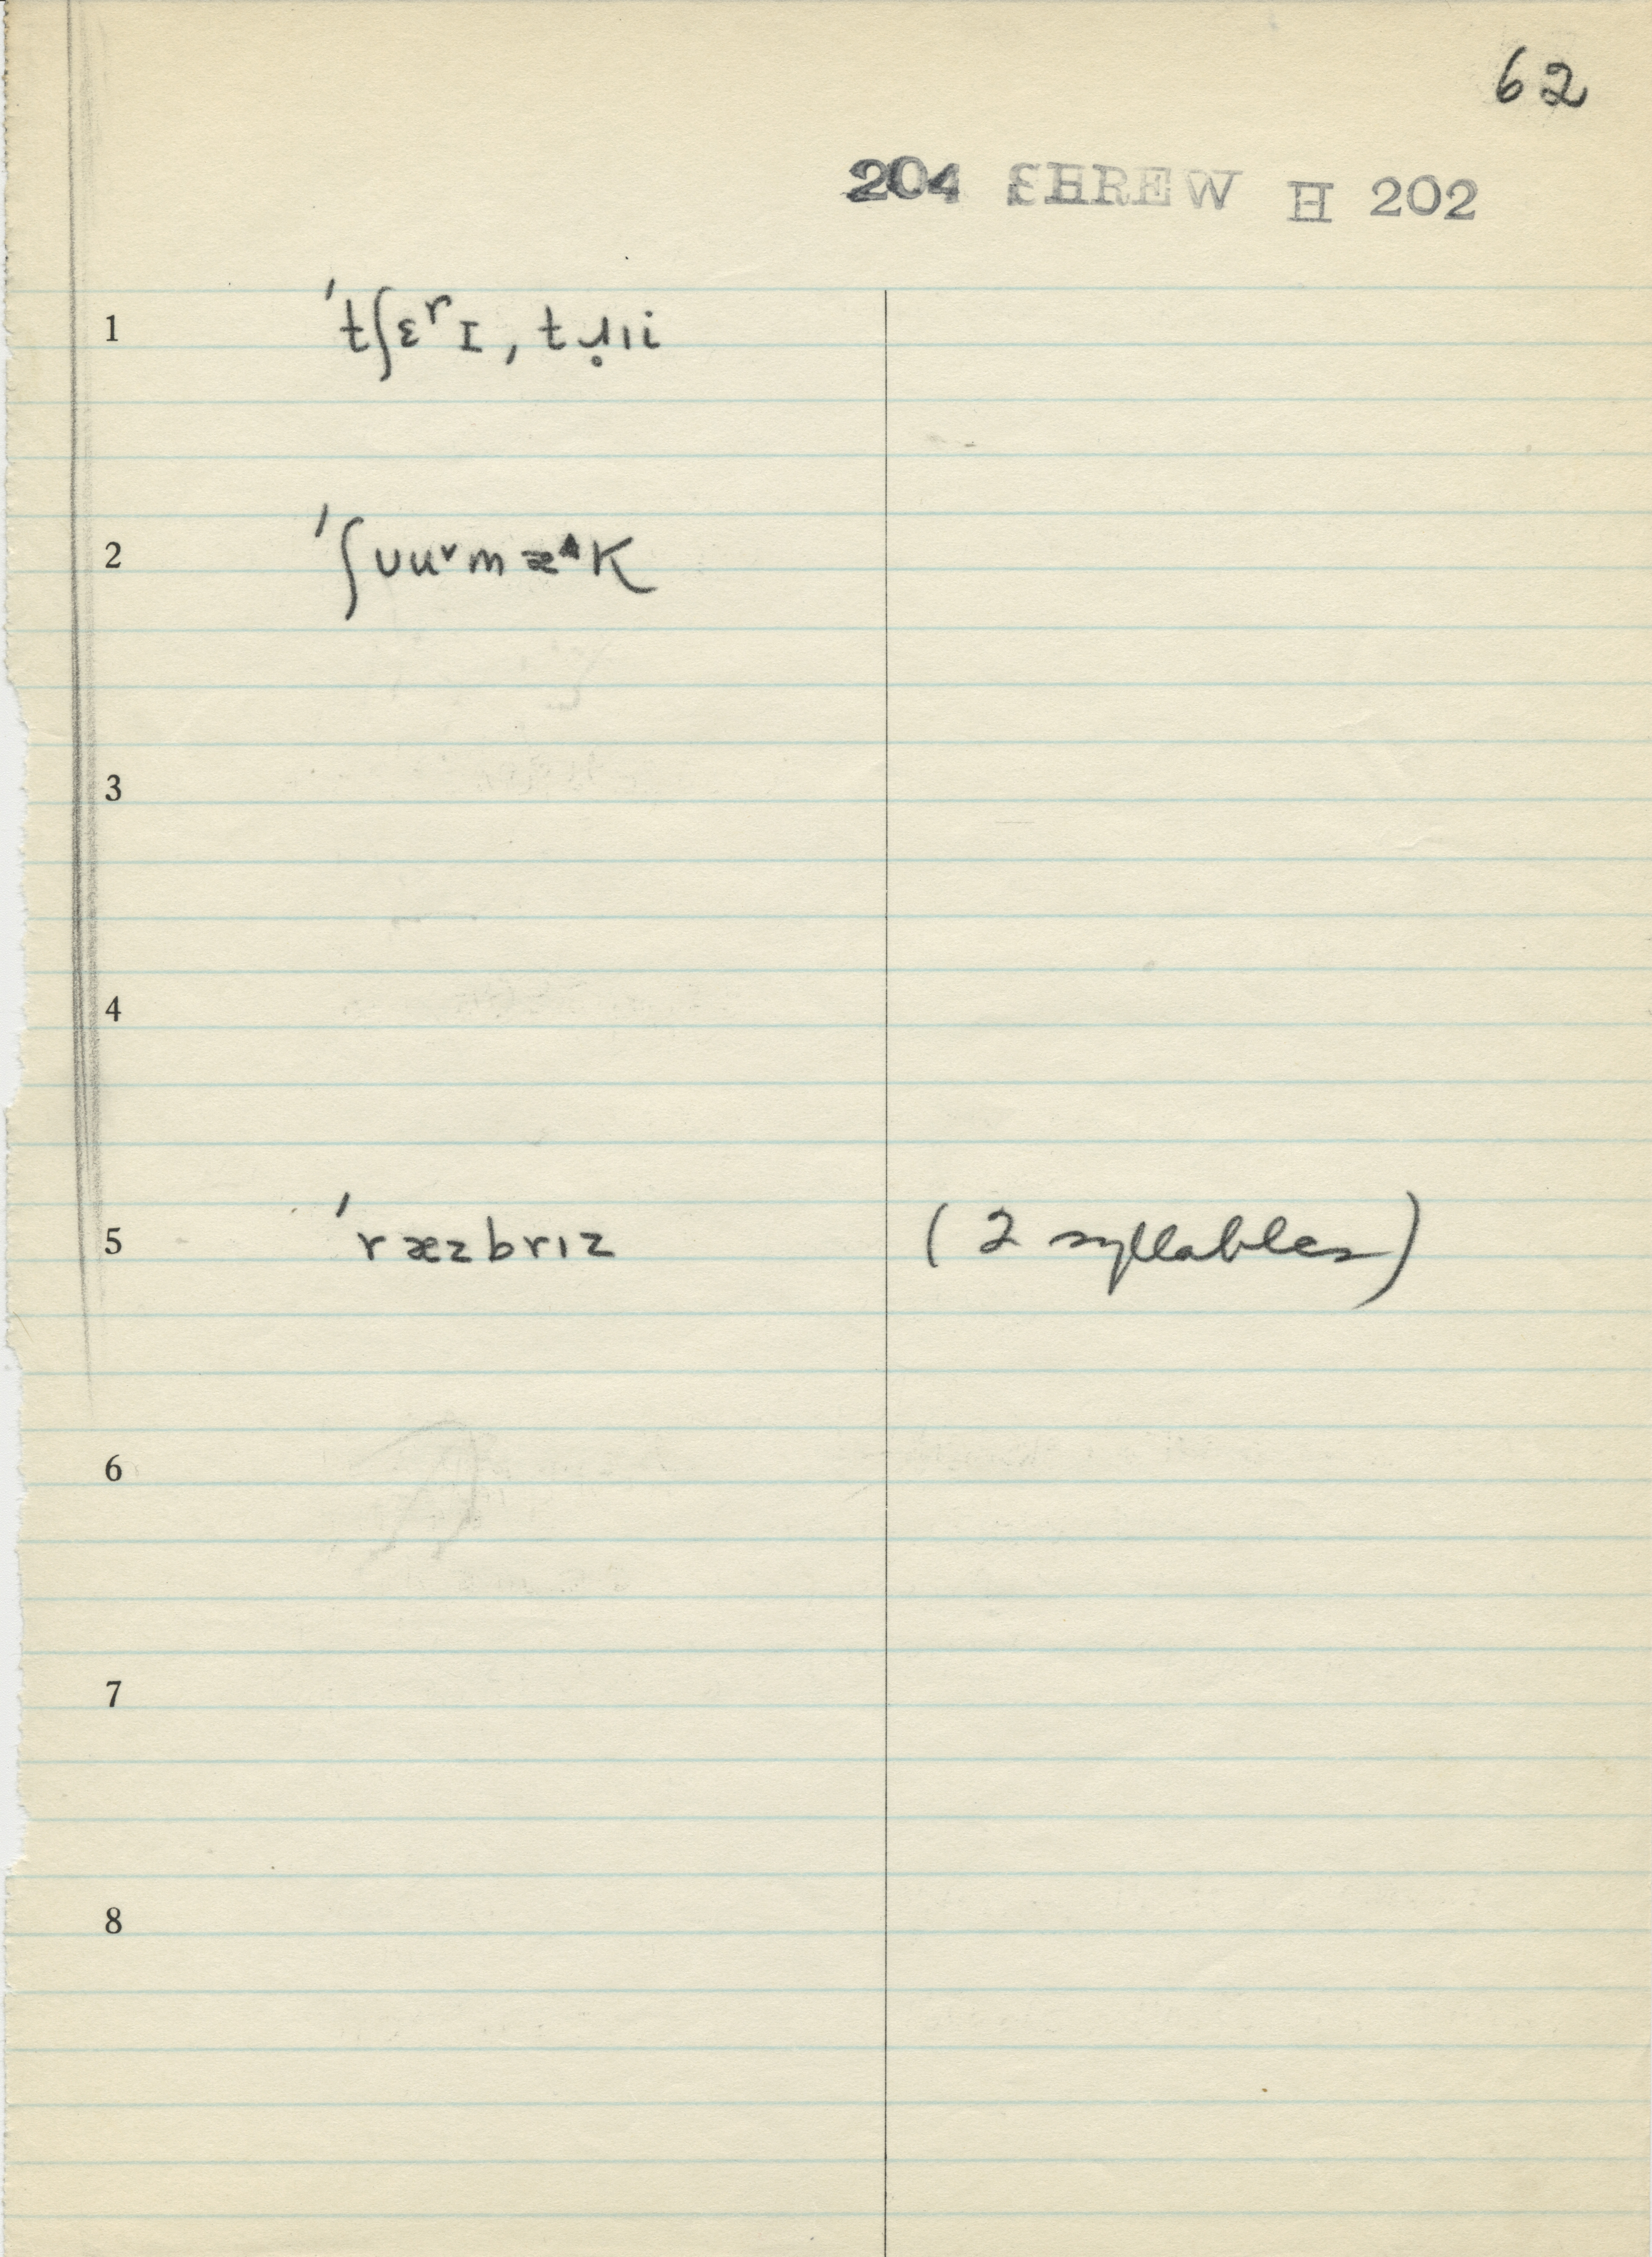 62
204 SHREW H 202
1 ˈtʃɛʳɪ, tɹ̥ɪi
2 ˈʃᴜu˅mæ^k
3
4
5 ˈræzbrɪz (2 syllables)
6
7
8